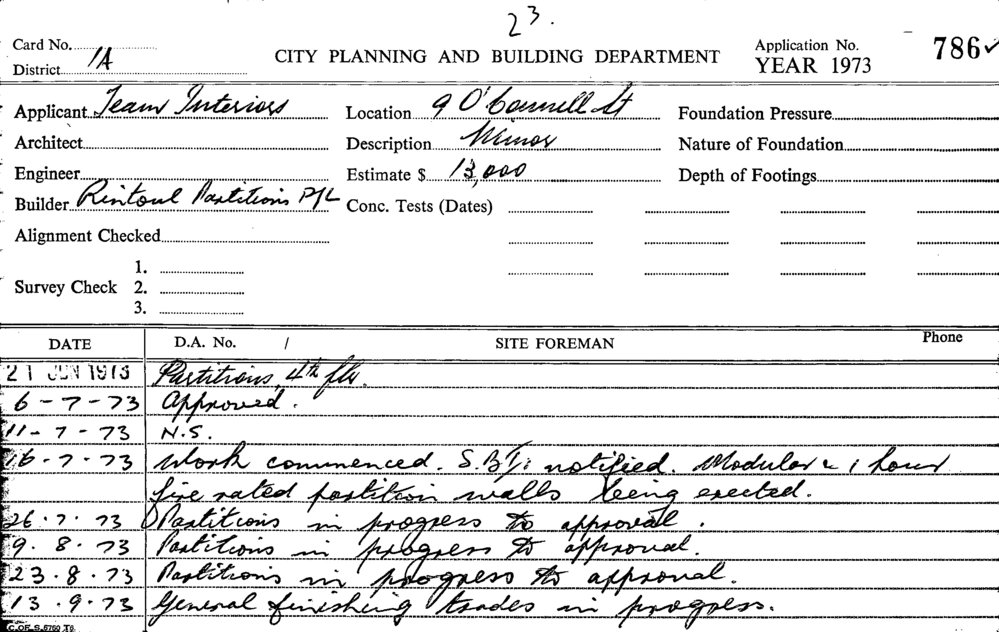 23.
Card No.
District 1A
CITY PLANNING AND BUILDING DEPARTMENT
Application No. 786
YEAR 1973
Applicant Team Interiors
Location 9 O'Connell St
Foundation Pressure
Architect
Description Minor
Nature of Foundation
Engineer
Estimate $ 13,000
Depth of Footings
Builder Rintoul Partitions P/L
Conc. Tests (Dates)
Alignment Checked
Survey Check
1.
2.
3.
DATE D.A. No. / SITE FOREMAN Phone
21 JUN 1973 Partitions, 4th flr.
6-7-73 Approved.
11-7-73 N.S.
16-7-73 Work commenced. notified. Modular & 1 hour
fire rated partition walls being erected.
26.7.73 Partitions in progress to approval.
9.8.73 Partitions in progress to approval.
23.8.73 Partitions in progress to approval.
13.9.73 General finishing trades in progress.